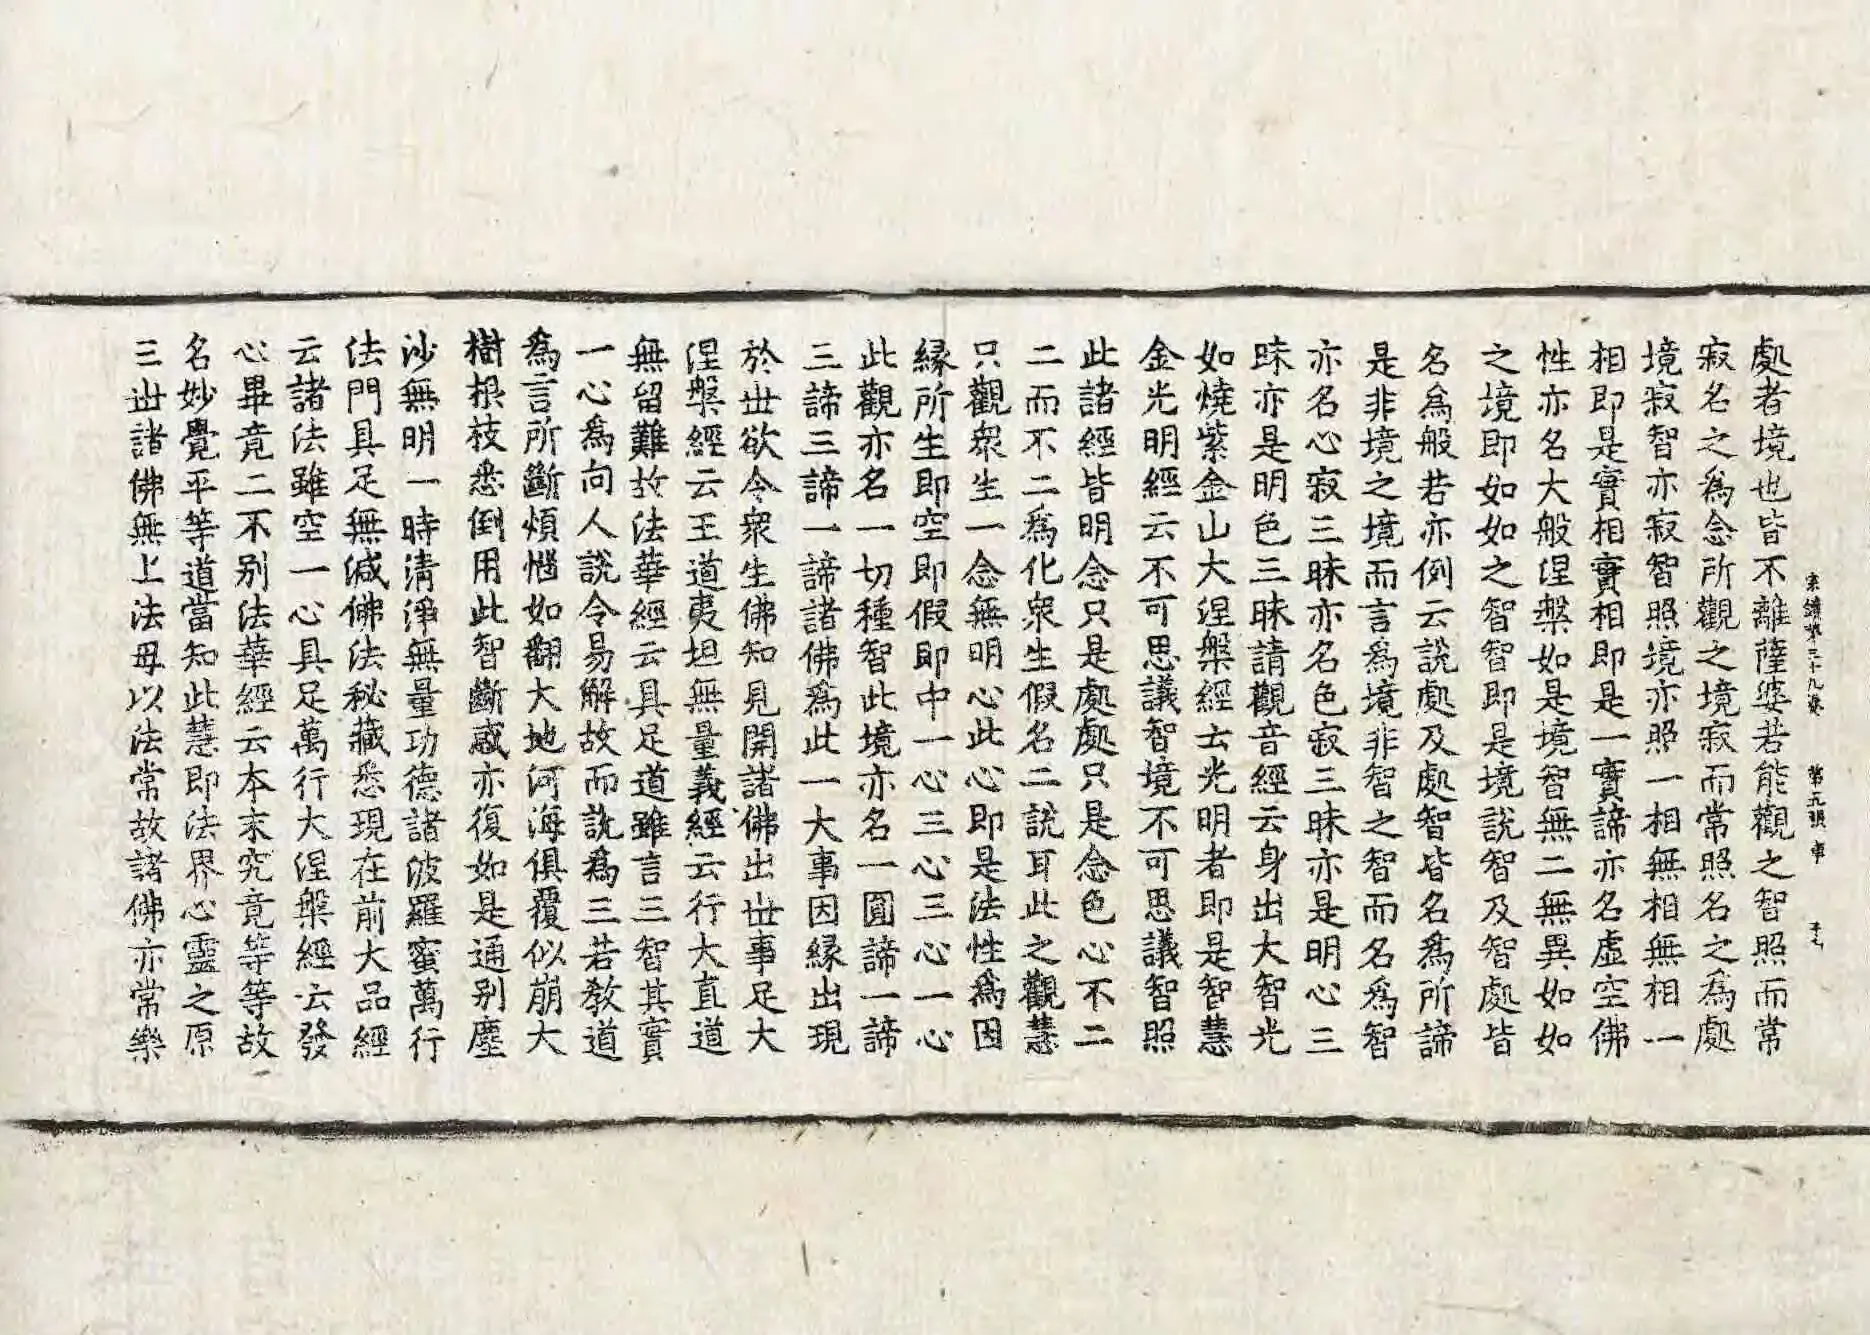 宗鏡第三十九卷 第九張 韋
處者境也皆不離薩婆若能觀之智照而常
寂名之為念所觀之境寂而常照名之為處
境寂智亦寂智照境亦照一相無相無相一
相即是實相實相即是一實諦亦名虛空佛
性亦名大般涅槃如是境智無二無異如如
之境即如如之智智即是境說智及智處皆
名為般若亦例云說處及處智皆名為所諦
是非境之境而言為境非智之智而名為智
亦名心寂三昧亦名色寂三昧亦是明心三
昧亦是明色三昧請觀音經云身出大智光
如燒紫金山大涅槃經云光明者即是智慧
金光明經云不可思議智境不可思議智照
此諸經皆明念只是處處只是念色心不二
二而不二為化眾生假名二說耳此之觀慧
只觀眾生一念無明心此心即是法性為因
緣所生即空即假即中一心三心三心一心
此觀亦名一切種智此境亦名一圓諦一諦
三諦三諦一諦諸佛為此一大事因緣出現
於世欲令眾生佛知見開諸佛出世事足大
涅槃經云王道夷坦無量義經云行大直道
無留難故法華經云具足道雖言三智其實
一心為向人說令易解故而說為三若教道
為言所斷煩惱如翻大地河海俱覆似崩大
樹根枝悉倒用此智斷惑亦復如是通別塵
沙無明一時清淨無量功德諸波羅蜜萬行
法門具足無減佛法秘藏悉現在前大品經
云諸法雖空一心具足萬行大涅槃經云發
心畢竟二不別法華經云本末究竟等等故
名妙覺平等道當知此慧即法界心靈之原
三世諸佛無上法母以法常故諸佛亦常樂